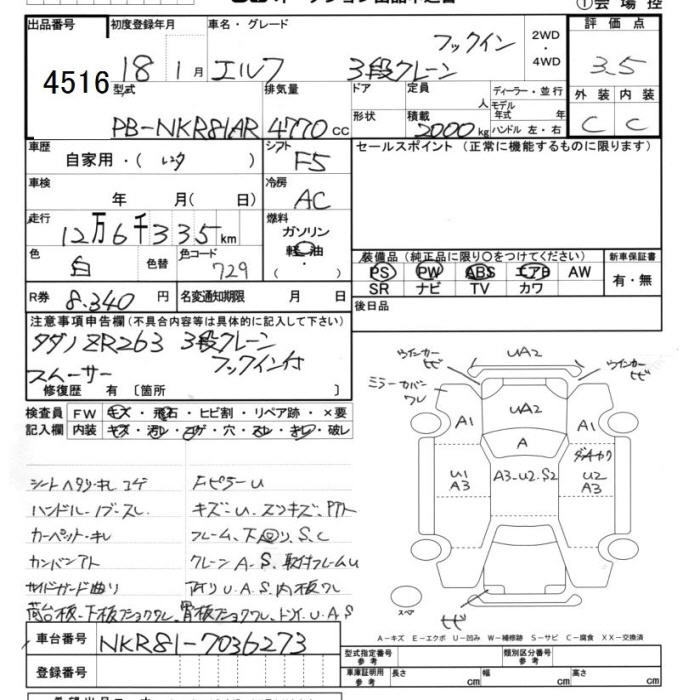 ① 会場控
出品番号 初度登録年月 車名・グレード 2WD・4WD 評価点
4516 18 1月 エルフ フックイン 3段クレーン 3.5
型式 排気量 ドア 定員 人 ディーラー・並行 外装 内装
形状 積載 モデル年式 年
PB-NKR81AR 4770cc 2000kg ハンドル 左・右 C C
車歴 シフト セールスポイント (正常に機能するものに限ります)
自家用・( レンタ ) F5
車検 冷房
年 月( 日) AC
走行 燃料
12万6千335km ガソリン
色 色替 色コード 軽油 装備品 (純正品に限り○をつけてください) 新車保証書
白 729 ( ) PS PW ABS エアB AW 有・無
SR ナビ TV カワ
R券 8.340円 名変通知期限 月 日 後日品
注意事項申告欄 (不具合内容等は具体的に記入して下さい)
タダノ ZR263 3段クレーン
フックイン付
スムーサー
修復歴 有 〔箇所 〕
検査員 FW キズ・飛石・ヒビ割・リペア跡・×要
記入欄 内装 キズ・汚レ・コゲ・穴・スレ・キレ・破レ
ウインカーヒビ UA2 ウインカーヒビ
ミラーカバーワレ
UA2
A1 A A1
U1 A3 A3・U2・S2 U2 A3
シートヘタリ・キレ コゲ Fピラー U
ハンドル・ノブ・スレ キズ・U
カーペット・キレ フレーム、下回り、S、C
カンバンアト クレーン A・S、取付フレームU
サイドガード曲り アオリ U.A.S 内板ワレ
スペア ヒビ
A－キズ E－エクボ U－凹み W－補修跡 S－サビ C－腐食 XX－交換済
車台番号 NKR81-7036273
型式指定番号 参考 類別区分番号 参考
登録番号 車庫証明用 参考 長さ cm 幅 cm 高さ cm